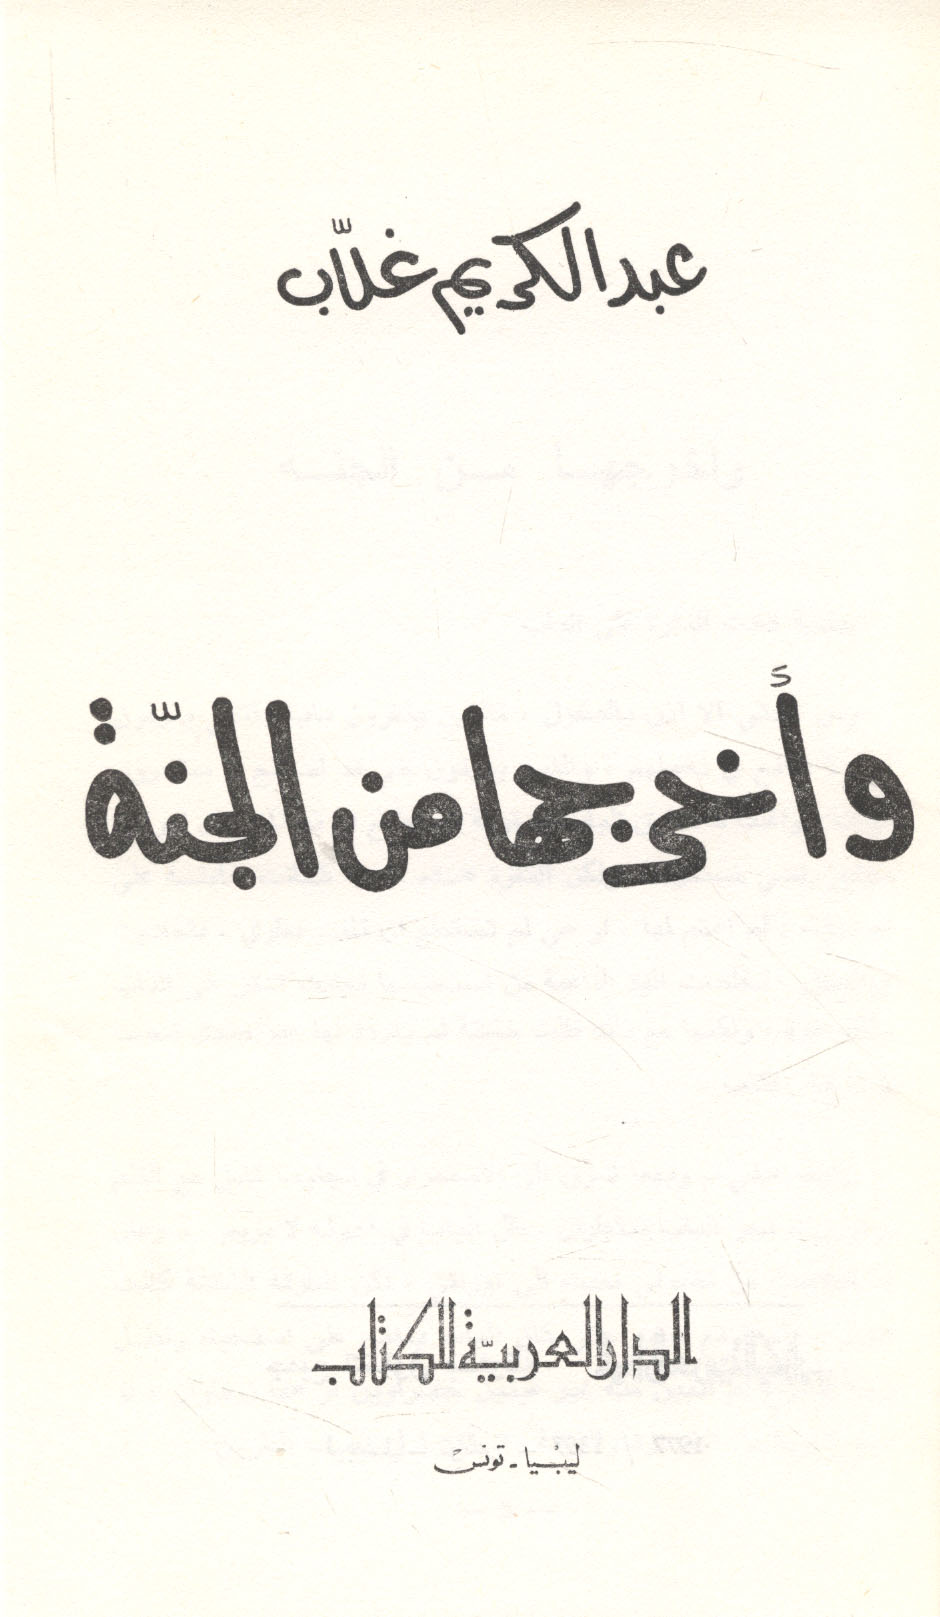 عبد الكريم غلّاب
وأخرجها من الجنّة
الدار العربيّة للكتاب
ليبيا - تونس